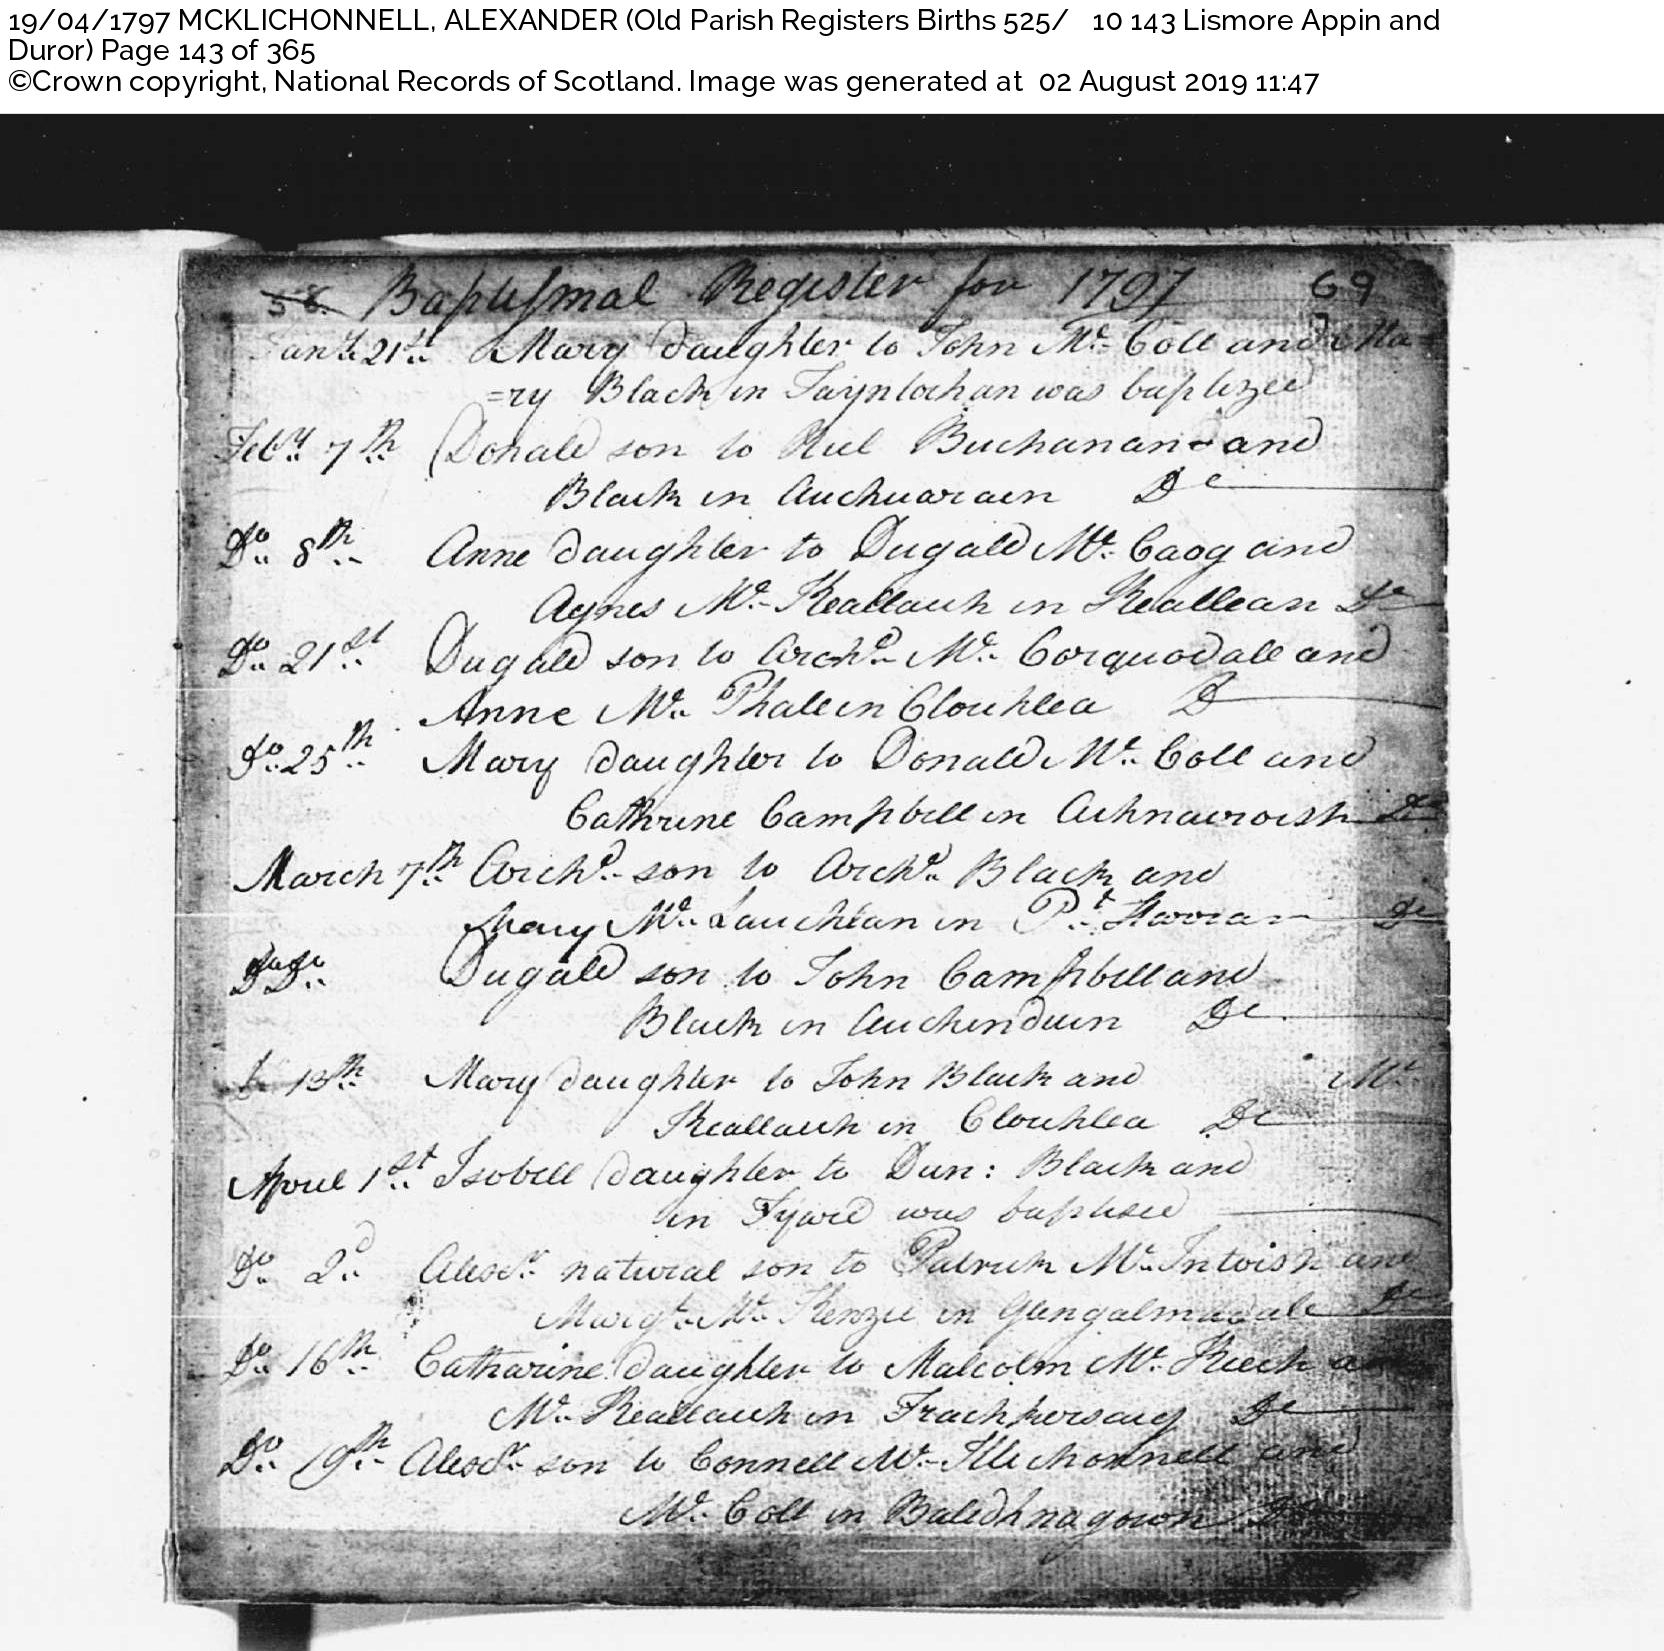 19/04/1797 MCKLICHONNELL, ALEXANDER (Old Parish Registers Births 525/ 10 143 Lismore Appin and
Duror) Page 143 of 365
©Crown copyright, National Records of Scotland. Image was generated at 02 August 2019 11:47
58. Baptismal Register for 1797 69
Janry 21st Mary daughter to John Mc Coll and Ma=
=ry Black in Taynlochan was baptized
Febry 7th Donald son to Niel Buchanan and
Black in Auchuarain Do
Do 8th Anne daughter to Dugald Mc Caog and
Agnes Mc Keallaich in Keallean Do
Do 21st Dugald son to Archd Mc Corquodale and
Anne Mc Phail in Clouhlea D
Do 25th Mary daughter to Donald Mc Coll and
Cathrine Campbell in Achnacroish Do
March 7th Archd son to Archd Black and
Mary Mc Lauchlan in Pt Do
Do Do Dugald son to John Campbell and
Black in Auchinduin Do
Do 13th Mary daughter to John Black and Mc
Keallaich in Clouhlea Do
April 1st Isobell daughter to Dun: Black and
in Fyard was baptised
Do 2d Alexr natural son to Patrick Mc Intoish and
Margt Mc Kenzie in Glengalmadale Do
Do 16th Catharine daughter to Malcolm Mc Kiech and
Mc Keallaich in Frackersaig Do
Do 19th Alexr son to Connell Mc Illichonnell and
Mc Coll in Baledhnagown Do